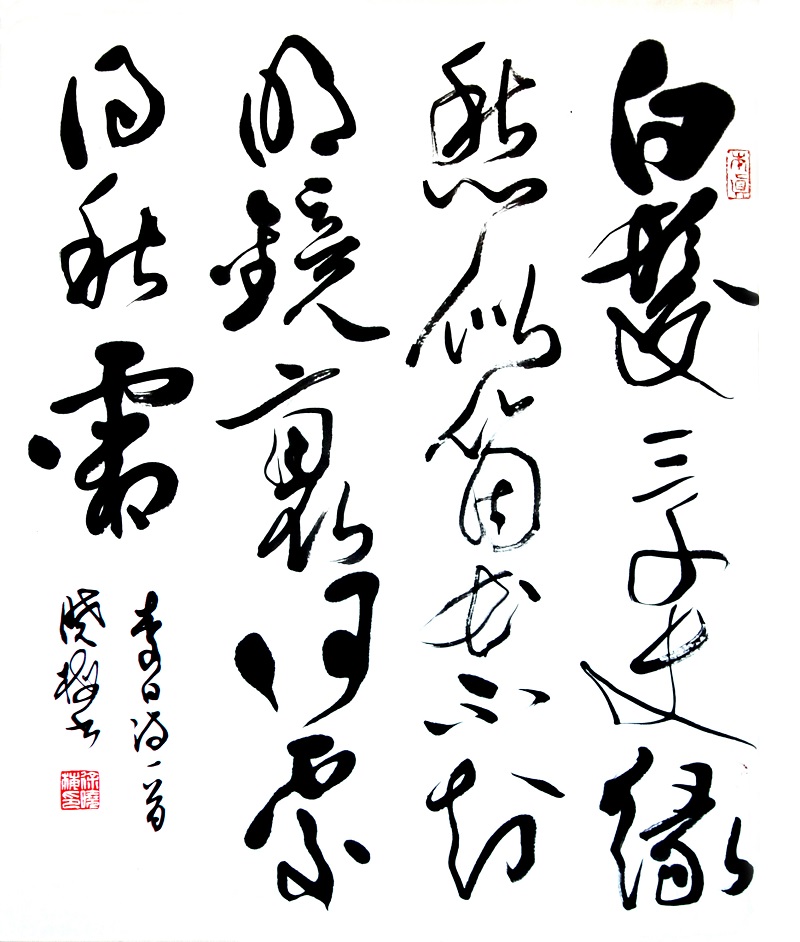 本眞
白髮三千丈緣
愁似箇長不知
明鏡裏何處
得秋霜
李白詩一首
曉梅书